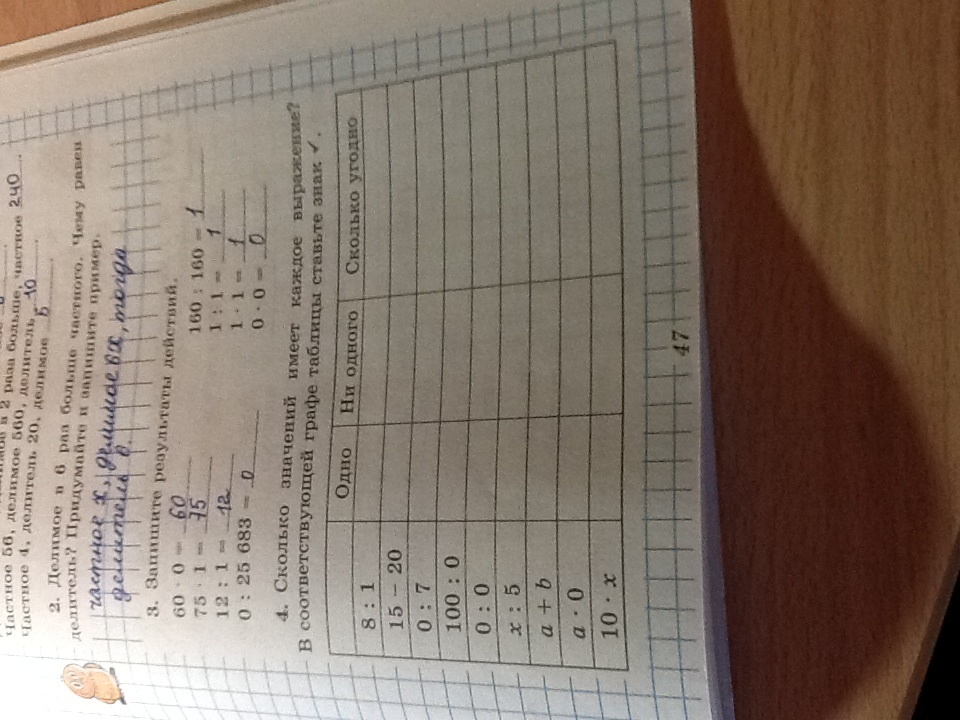 Частное 56, делимое 560, делитель 10.
частное 4, делитель 20, делимое 5.
2. Делимое в 6 раз больше частного. Чему равен
делитель? Придумайте и запишите пример.
частное х, делимое 6х, тогда
делитель 6.
3. Запишите результаты действий.
60 · 0 = 60 160 : 160 = 1
75 · 1 = 75 1 : 1 = 1
12 : 1 = 12 1 · 1 = 1
0 : 25 683 = 0 0 · 0 = 0
4. Сколько значений имеет каждое выражение?
В соответствующей графе таблицы ставьте знак ✓.
Одно Ни одного Сколько угодно
8 : 1
15 − 20
0 : 7
100 : 0
0 : 0
x : 5
a + b
a · 0
10 · x
47